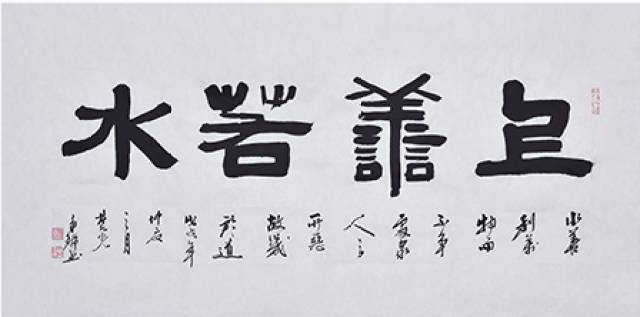 上善若水
水善
利萬
物而
不争
處衆
人之
所惡
故幾
於道
戊戌年
仲夏
之月